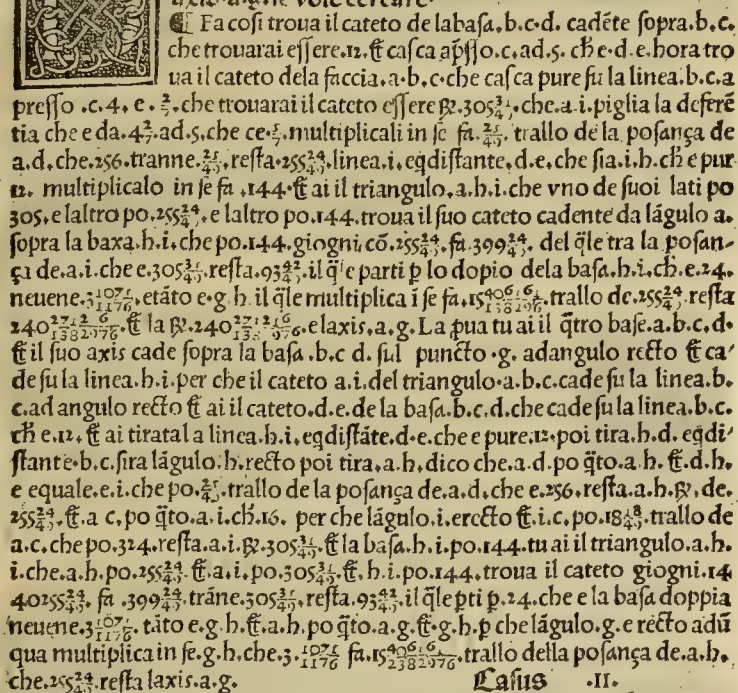 ¶ Fa coſi troua il cateto de labaſa.b.c.d. cadẽte ſopra.b.c.
che trouarai eſſere.12. et caſca ap̃ſſo.c.ad.5. ch̃ e.d.e.hora tro
ua il cateto dela faccia.a.b.c.che caſca pure ſu la linea.b.c.a
preſſo .c.4. e . 2/7.che trouarai il cateto eſſere ℞.305 31/49.che.a.i.piglia la deferẽ
tia che e da.4 2/7.ad.5.che ce.5/7.multiplicali in ſe fa. 25/49. trallo de la poſança de
a.d.che.256.tranne.25/49.reſta.255 24/49.linea.i.eqdiſtante.d.e.che ſia.i.h.ch̃ e pur
12. multiplicalo in ſe fa .144.et ai il triangulo.a.h.i.che vno de ſuoi lati po
305.e laltro po.255 24/49.e laltro po.144.troua il ſuo cateto cadente da lãgulo a.
ſopra la baxa.h.i.che po.144.giogni cõ.255 24/49.fa.399 24/49. del q̃le tra la poſan-
ça de.a.i.che e.305 31/49.reſta.93 42/49.il q̃l e parti p̱ lo dopio dela baſa.h.i.ch̃.e.24.
neuene.3 1071/1176.etãto e.g.h.il q̃le multiplica ĩ ſe fa.15 406161/1382976.trallo de.255 24/49.reſta
240 271216/1382976.et la ℞.240 271216/1382976.e laxis.a.g. La pua tu ai il q̃tro baſe.a.b.c.d.
et il ſuo axis cade ſopra la baſa .b.c d. ſul puncto .g. adangulo recto et ca-
de ſu la linea.h.i.per che il cateto a.i.del triangulo.a.b.c.cade ſu la linea.b.
c.ad angulo recto et ai il cateto.d.e.de la baſa.b.c.d.che cade ſu la linea.b.c.
ch̃ e.12.et ai tirata la linea.h.i.eqdiſtãte.d.e.che e pure.12.poi tira.h.d. eqdi-
ſtante.b.c.ſira lãgulo.h.recto poi tira.a.h.dico che.a.d.po q̃to.a.h. et.d.h.
e equale.e.i.che po.25/49.trallo de la poſança de.a.d.che e.256.reſta.a.h.℞.de.
255 24/49.et.a c.po q̃to.a.i.ch̃.16. per che lãgulo.i.e recto et.i.c.po.18 18/49.trallo de
a.c.che po.324.reſta.a.i.℞.305 31/49.et la baſa.h.i.po.144.tu ai il triangulo.a.h.
i.che.a.h.po.255 24/49.et.a.i.po.305 31/49.et.h.i.po.144.troua il cateto giogni.14
4 0255 24/49. fa .399 24/49.trãne.305 31/49.reſta.93 42/49.il q̃le pti p̱.24.che e la baſa doppia
neuene.3 1071/1176. tãto e.g.h.et.a.h.po q̃to.a.g.et.g.h.p̱ che lãgulo.g.e recto adũ
qua multiplica in ſe.g.h.che.3.1071/1176 fa.15 406161/1382976.trallo della poſança de.a.h.
che.255 24/49.reſta laxis.a.g. Caſus .II.